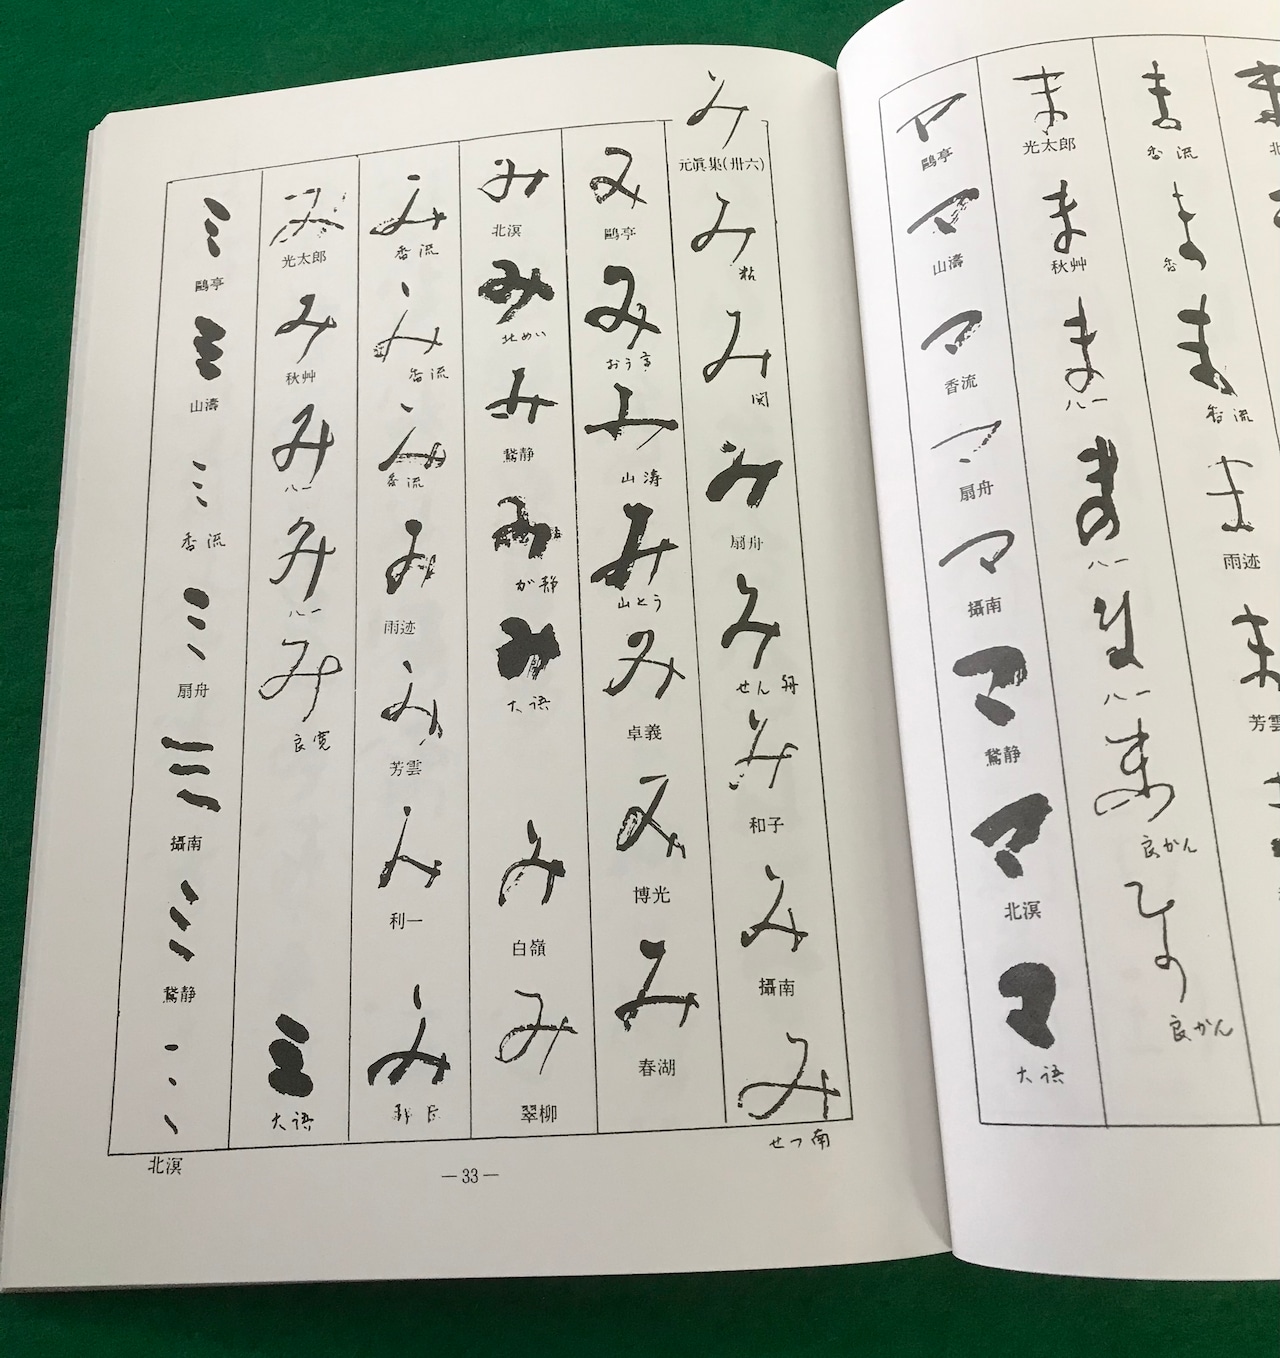 み
元眞集(卅六)
み
粘
み
関
み
扇舟
み
せん舟
み
和子
み
攝南
み
せつ南
み
鷗亭
み
おう亭
み
山濤
み
山とう
み
卓義
み
博光
み
春湖
み
北溟
み
北めい
み
鵞静
み
が静
み
大語
み
白嶺
み
翠柳
み
香流
み
香流
み
香流
み
雨迹
み
芳雲
み
利一
み
み
光太郎
み
秋艸
み
八一
み
八一
み
良寛
ミ
大語
ミ
鷗亭
ミ
山濤
ミ
香流
ミ
扇舟
ミ
攝南
ミ
鵞静
ミ
北溟
―33―
ま
香流
ま
香
ま
香流
ま
雨迹
ま
芳雲
ま
光太郎
ま
秋艸
ま
八一
ま
八一
ま
八一
ま
良かん
ま
良かん
マ
鷗亭
マ
山濤
マ
香流
マ
扇舟
マ
攝南
マ
鵞静
マ
北溟
マ
大語